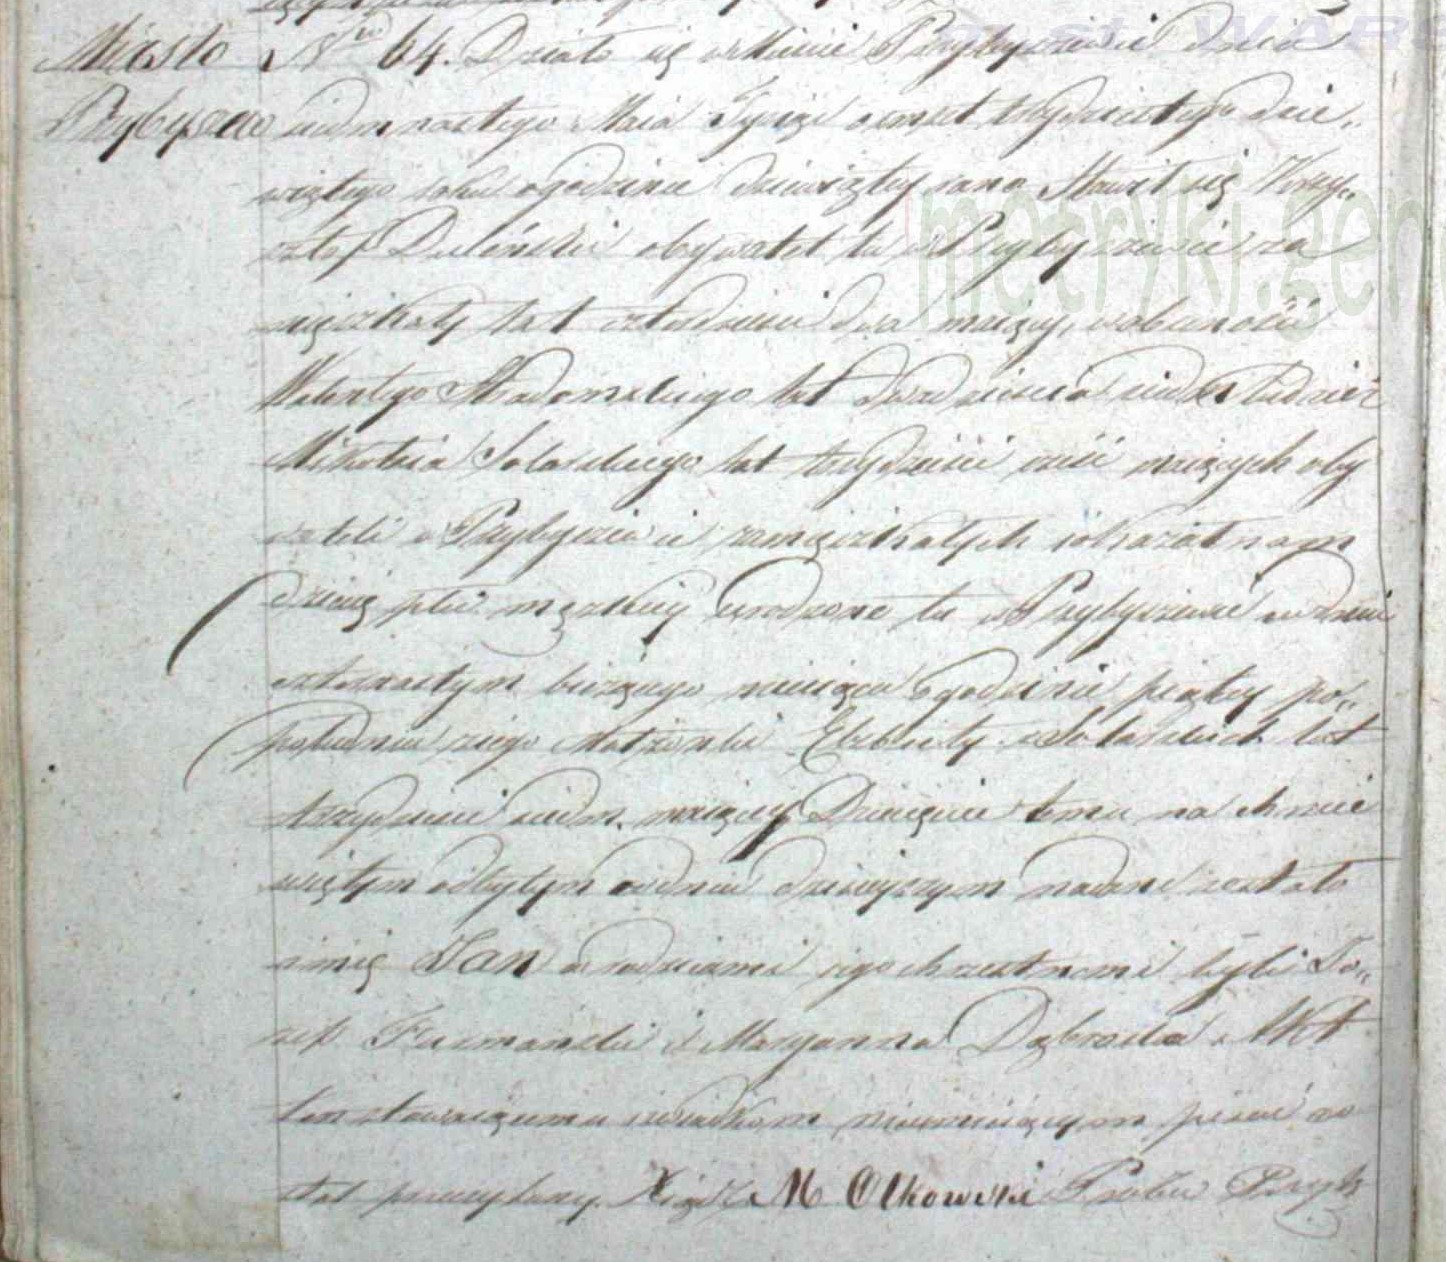 Miasto Nro 64. Działo się w Mieście Przybyszewie dnia
Przybyszew siedmnastego Maia Tysiąc osmset trzydziestego dzie„
wiątego roku o godzinie dziewiątey rano Stawił się Krzy„
sztof Duliński obywatel tu w Przybyszewie za
mięszkały lat czterdzieści dwa maiący, w obecności
Walentego Stradomskiego lat dwadzieścia siedm tudzież
Mikołaia Solarskiego lat trzydzieści sześć maiących oby
wateli w Przybyszewie zamięszkałych i okazał nam
dziecię płci męzkiey urodzone tu w Przybyszewie w dniu
czternastym bieżącego miesiąca o godzinie piątey po„
południu z iego Małżonki Elżbiety z Solarskich lat
trzydzieści siedm maiącey Dziecięciu temu na chrzcie
świętym odbytym w dniu dzisieyszym nadane zostało
imię Jan a rodzicami iego chrzestnemi byli Jó„
zef Furmański i Maryanna Dąbroska. Akt
ten stawaiącemu i świadkom nieumieiącym pisać zo
stał przeczytany. Xiądz M Olkowski Prob. Przyb
metryki.gen